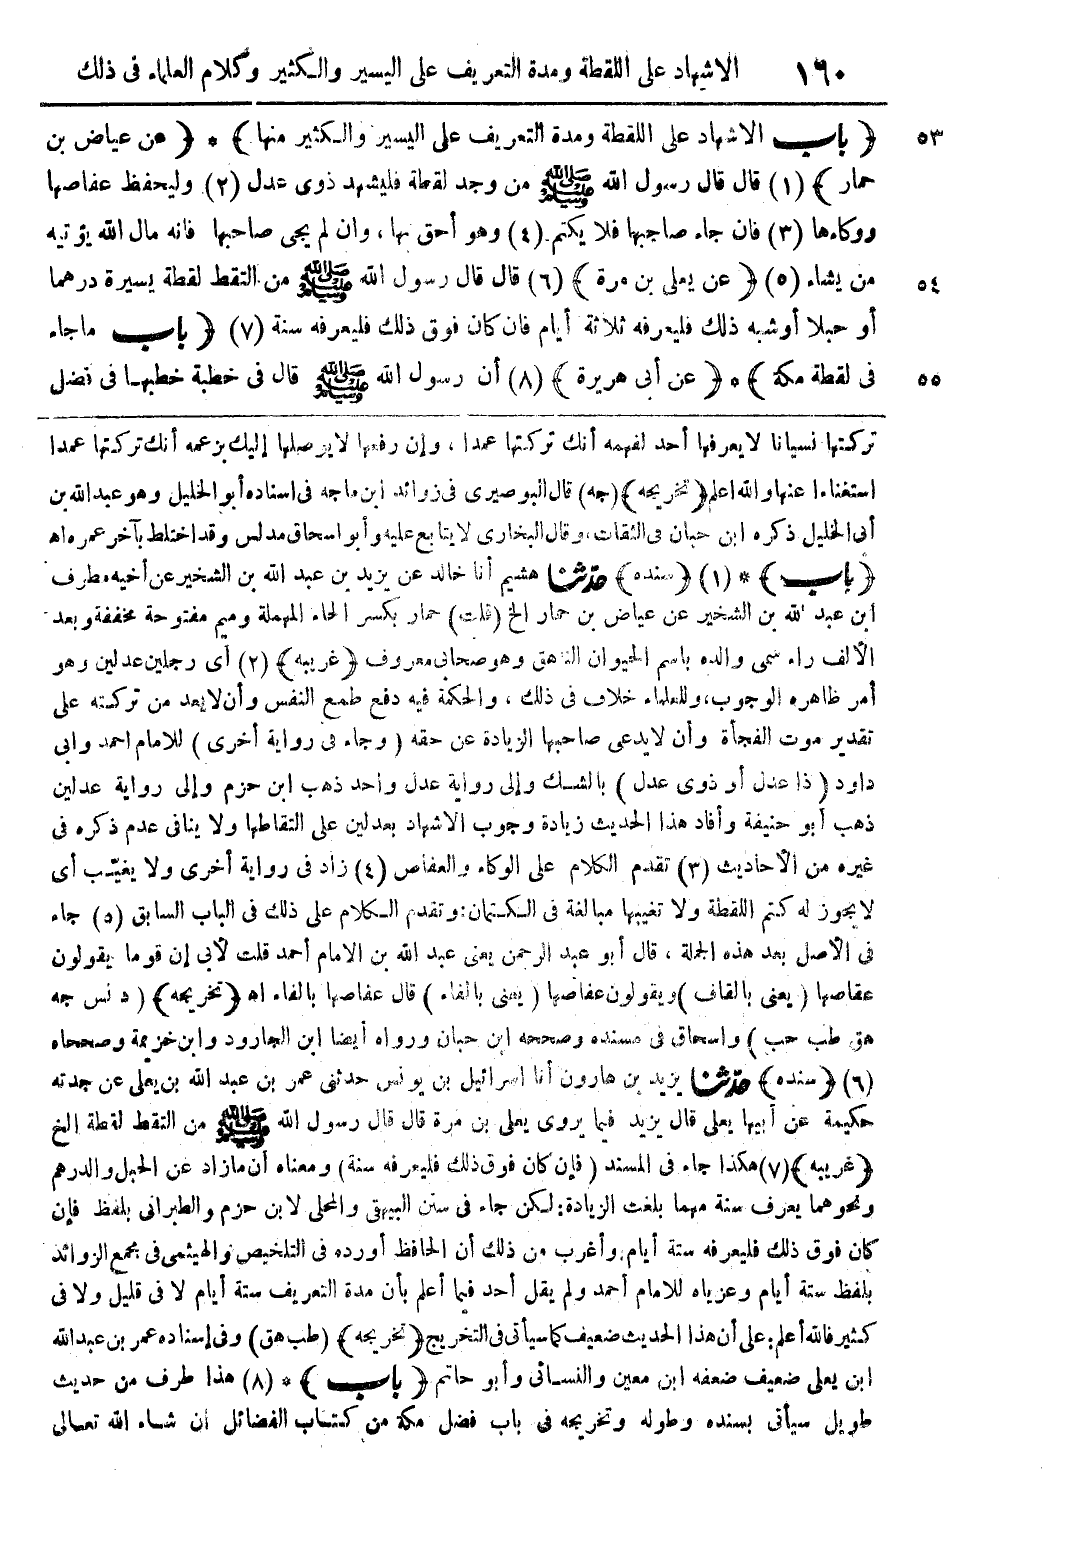 ١٦٠ الاشهاد على اللقطة ومدة التعريف على اليسير والكثير وكلام العلماء فى ذلك
٥٣ ﴿ باب الاشهاد على اللقطة ومدة التعريف على اليسير والكثير منها ﴾ * ﴿ عن عياض بن
حمار ﴾ (١) قال قال رسول الله ﷺ من وجد لقطة فليشهد ذوى عدل (٢) وليحفظ عفاصها
ووكاءها (٣) فان جاء صاحبها فلا يكتم (٤) وهو أحق بها ، وان لم يجى صاحبها فانه مال الله يؤتيه
٥٤ من يشاء (٥) ﴿ عن يعلى بن مرة ﴾ (٦) قال قال رسول الله ﷺ من التقط لقطة يسيرة درهما
أو حبلا أو شبه ذلك فليعرفه ثلاثة أيام فان كان فوق ذلك فليعرفه سنة (٧) ﴿ باب ماجاء
٥٥ فى لقطة مكة ﴾ * ﴿ عن أبى هريرة ﴾ (٨) أن رسول الله ﷺ قال فى خطبة خطبها فى فضل
تركتها نسيانا لا يعرفها أحد لفهمه أنك تركتها عمدا ، وإن رفعها لايوصلها إليك بزعمه أنك تركتها عمدا
استغناءا عنها والله اعلم ﴿ تخريجه ﴾ (جه) قال البوصيرى فى زوائد ابن ماجه فى اسناده أبو الخليل وهو عبد الله بن
أبى الخليل ذكره ابن حبان فى الثقات، وقال البخارى لا يتابع عليه وأبو اسحاق مدلس وقد اختلط بآخر عمره اه
﴿ باب ﴾ * (١) ﴿ سنده ﴾ حدثنا هشيم أنا خالد عن يزيد بن عبد الله بن الشخير عن أخيه مطرف
ابن عبد الله بن الشخير عن عياض بن حمار الخ (قلت) حمار بكسر الحاء المهملة وميم مفتوحة مخففة وبعد
الألف راء سمى والده باسم الحيوان الناهق وهو صحابى معروف ﴿ غريبه ﴾ (٢) أى رجلين عدلين وهو
أمر ظاهره الوجوب، وللعلماء خلاف فى ذلك ، والحكمة فيه دفع طمع النفس وأن لا يعد من تركته على
تقدير موت الفجأة وأن لايدعى صاحبها الزيادة عن حقه ( وجاء فى رواية أخرى ) للامام احمد وابى
داود ( ذا عدل أو ذوى عدل ) بالشك وإلى رواية عدل واحد ذهب ابن حزم وإلى رواية عدلين
ذهب أبو حنيفة وأفاد هذا الحديث زيادة وجوب الاشهاد بعدلين على التقاطها ولا ينافى عدم ذكره فى
غيره من الأحاديث (٣) تقدم الكلام على الوكاء والعفاص (٤) زاد فى رواية أخرى ولا يغيّب أى
لا يجوز له كتم اللقطة ولا تغيبها مبالغة فى الكتمان: وتقدم الكلام على ذلك فى الباب السابق (٥) جاء
فى الأصل بعد هذه الجملة ، قال أبو عبد الرحمن يعنى عبد الله بن الامام أحمد قلت لأبى إن قوما يقولون
عقاصها ( يعنى بالقاف ) ويقولون عفاصها ( يعنى بالفاء ) قال عفاصها بالفاء اه ﴿ تخريجه ﴾ ( د نس جه
هق طب حب ) واسحاق فى مسنده وصححه ابن حبان ورواه أيضا ابن الجارود وابن خزيمة وصححاه
(٦) ﴿ سنده ﴾ حدثنا يزيد بن هارون أنا اسرائيل بن يونس حدثنى عمر بن عبد الله بن يعلى عن جدته
حكيمة عن أبيها يعلى قال يزيد فيما يروى يعلى بن مرة قال قال رسول الله ﷺ من التقط لقطة الخ
﴿ غريبه ﴾ (٧) هكذا جاء فى المسند ( فإن كان فوق ذلك فليعرفه سنة ) ومعناه أن مازاد عن الحبل والدرهم
ونحوهما يعرف سنة مهما بلغت الزيادة: لكن جاء فى سنن البيهقى والمحلى لابن حزم والطبرانى بلفظ فإن
كان فوق ذلك فليعرفه ستة أيام، وأغرب من ذلك أن الحافظ أورده فى التلخيص والهيثمى فى مجمع الزوائد
بلفظ ستة أيام وعزياه للامام أحمد ولم يقل أحد فيما أعلم بأن مدة التعريف ستة أيام لا فى قليل ولا فى
كثير فالله أعلم: على أن هذا الحديث ضعيف كما سيأتى فى التخريج ﴿ تخريجه ﴾ (طب هق) وفى إسناده عمر بن عبد الله
ابن يعلى ضعيف ضعفه ابن معين والنسائى وأبو حاتم ﴿ باب ﴾ * (٨) هذا طرف من حديث
طويل سيأتى بسنده وطوله وتخريجه فى باب فضل مكة من كتاب الفضائل ان شاء الله تعالى